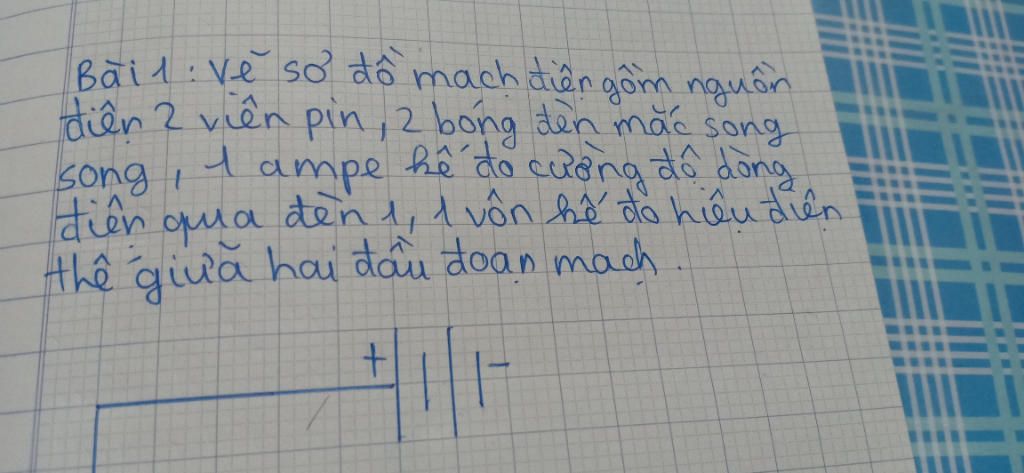 Bài 1: Vẽ sơ đồ mạch điện gồm nguồn
điện 2 viên pin, 2 bóng đèn mắc song
song, 1 ampe kế đo cường độ dòng
điện qua đèn 1, 1 vôn kế đo hiệu điện
thế giữa hai đầu đoạn mạch.
+ -